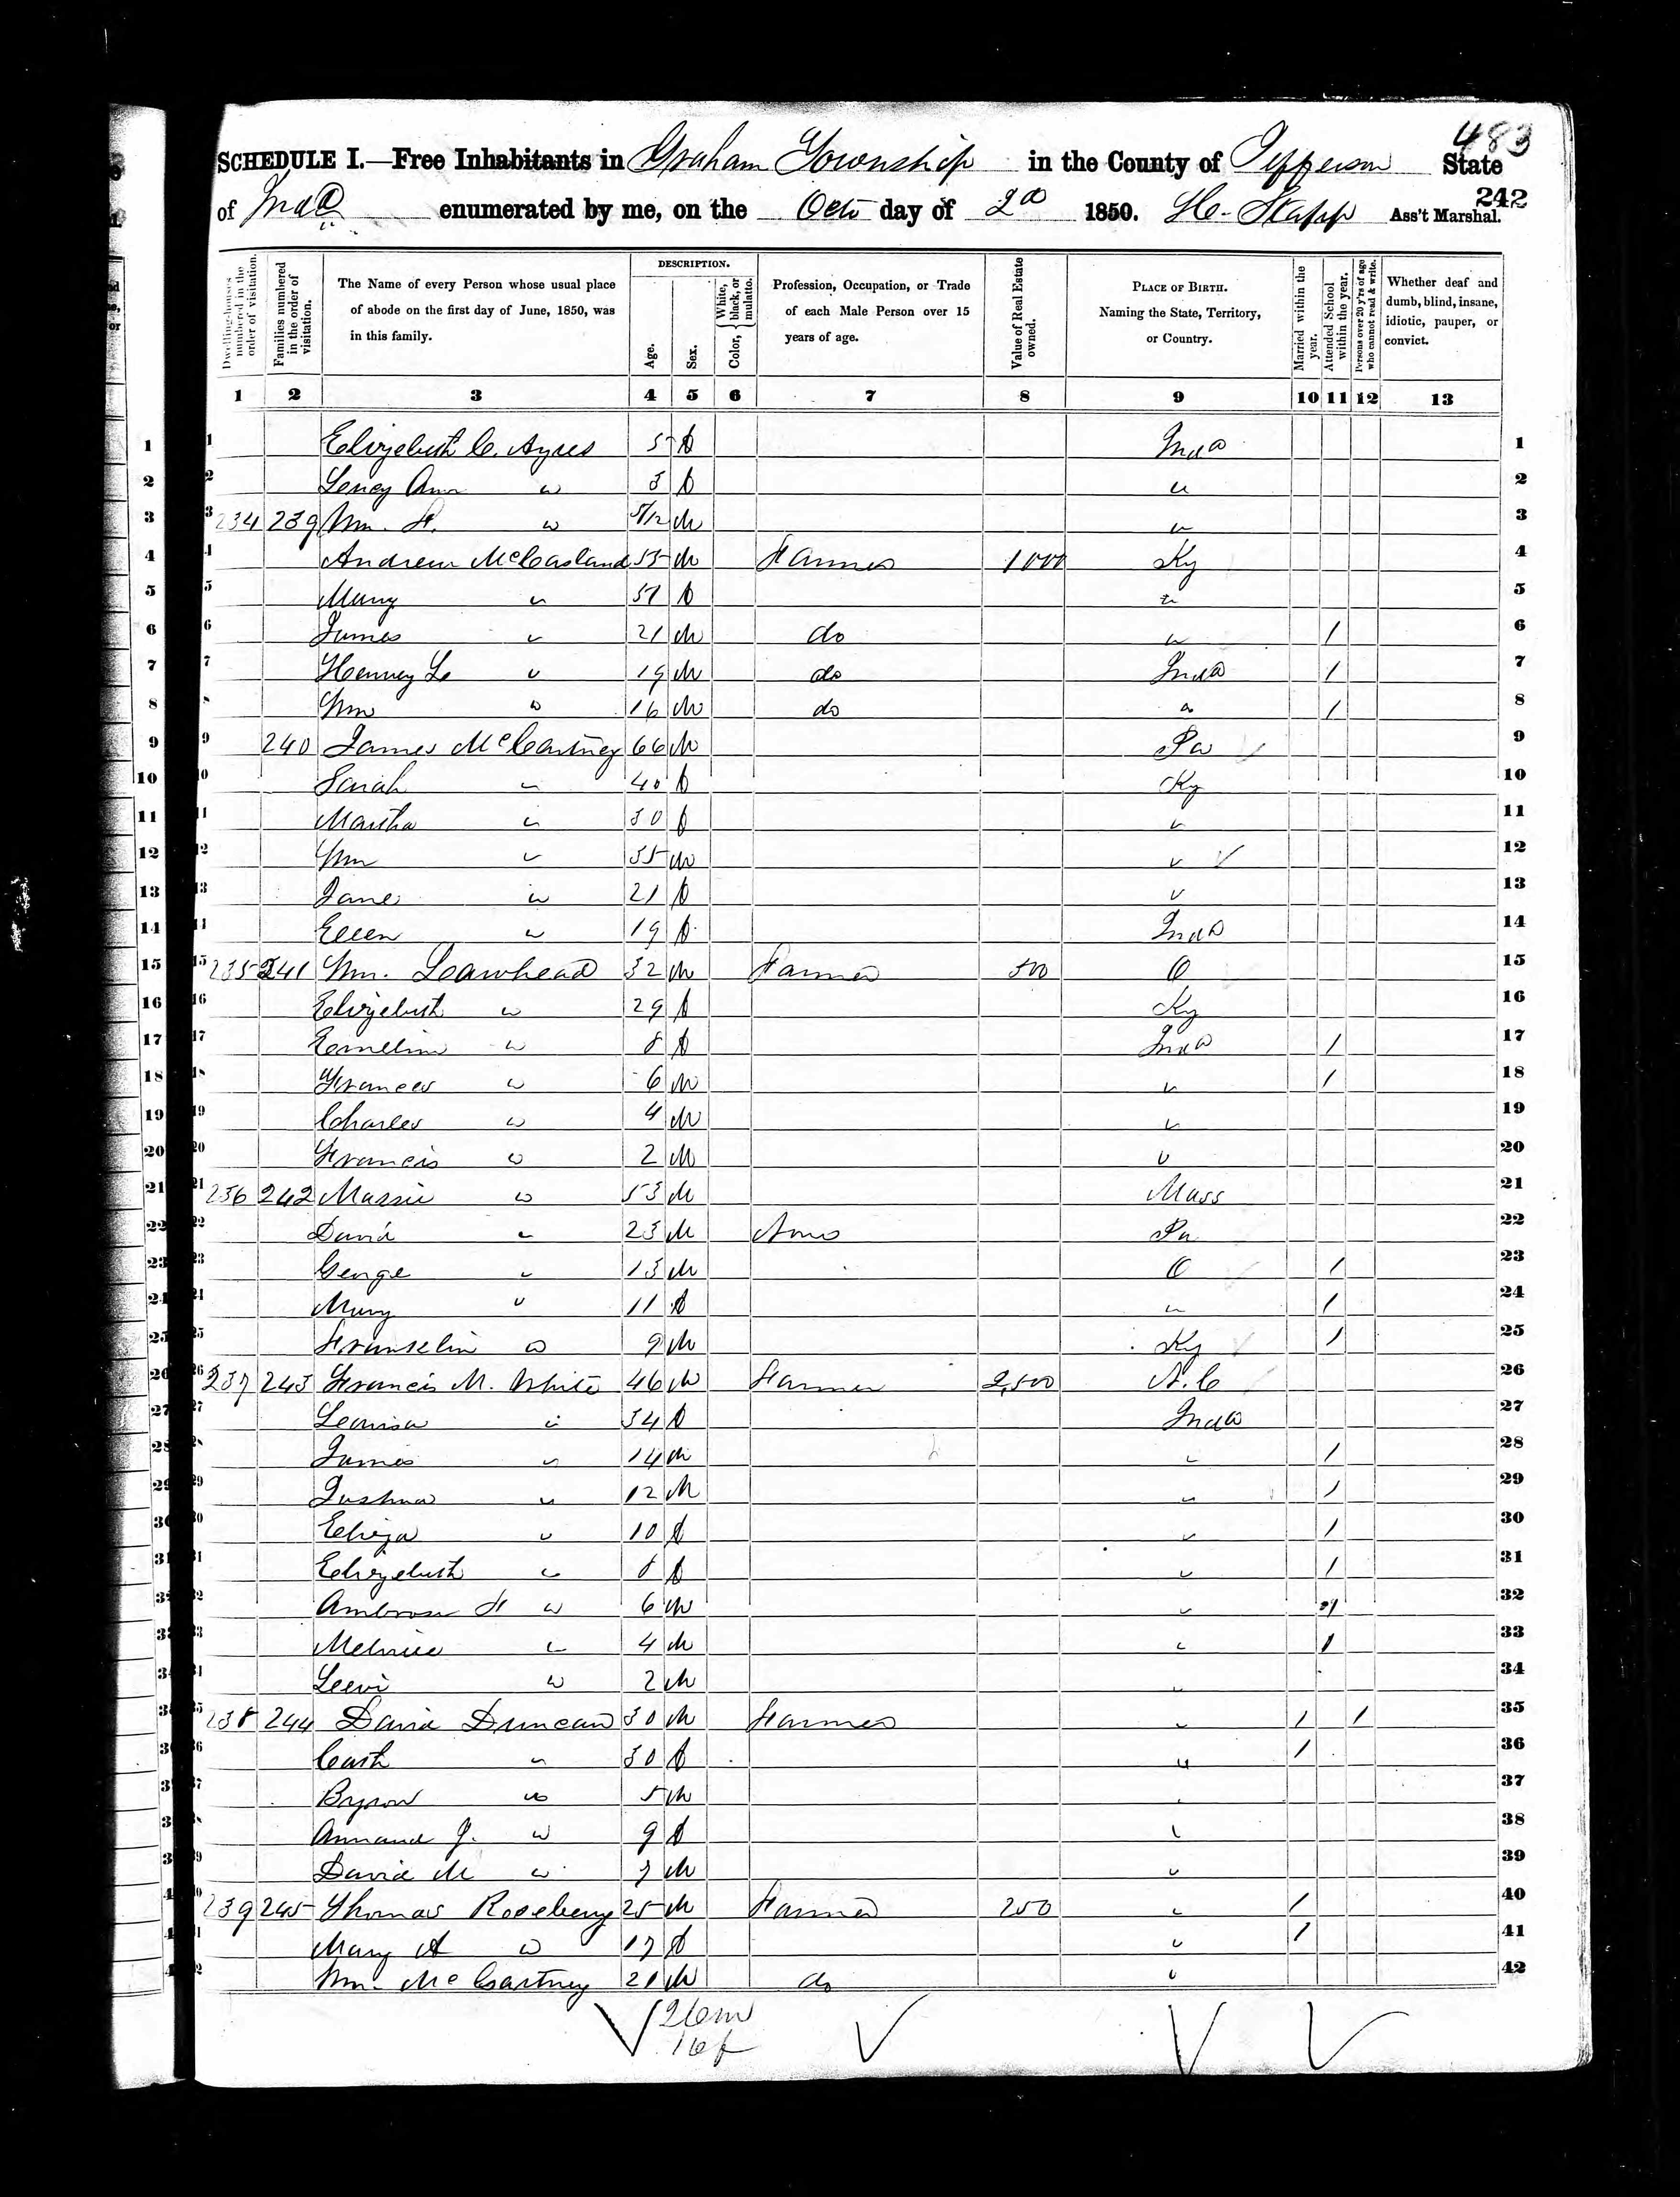 483
SCHEDULE I.—Free Inhabitants in Graham Township in the County of Jefferson State
242
of Inda enumerated by me, on the Octo day of 2d 1850. H. Stapp Ass't Marshal.
Dwelling-houses numbered in the order of visitation.
Families numbered in the order of visitation.
The Name of every Person whose usual place of abode on the first day of June, 1850, was in this family.
DESCRIPTION.
Age.
Sex.
Color, { White, black, or mulatto.
Profession, Occupation, or Trade of each Male Person over 15 years of age.
Value of Real Estate owned.
PLACE OF BIRTH. Naming the State, Territory, or Country.
Married within the year.
Attended School within the year.
Persons over 20 y'rs of age who cannot read & write.
Whether deaf and dumb, blind, insane, idiotic, pauper, or convict.
1 2 3 4 5 6 7 8 9 10 11 12 13
1 Elizebeth C. Ayres 5 f Inda 1
2 Leney Ann " 3 f " 2
3 234 239 Wm. H. " 5/12 M " 3
4 Andrew McCasland 55 M Farmer 1000 Ky 4
5 Mary " 51 f " 5
6 James " 21 M do " / 6
7 Henney L " 19 M do Inda / 7
8 Wm " 16 M do " / 8
9 240 James McCartney 66 M Pa 9
10 Sarah " 40 f Ky 10
11 Martha " 30 f " 11
12 Wm " 35 M " 12
13 Jane " 21 f " 13
14 Ellen " 19 f Inda 14
15 235 241 Wm. Lawhead 32 M Farmer 500 O 15
16 Elizebeth " 29 f Ky 16
17 Emeline " 8 f Inda / 17
18 Frances " 6 M " / 18
19 Charles " 4 M " 19
20 Francis " 2 M " 20
21 236 242 " 53 M Mass 21
22 David " 23 M Pa 22
23 George " 13 M O / 23
24 Mary " 11 f " / 24
25 Franklin " 9 M Ky / 25
26 237 243 Francis M. White 46 M Farmer 2,500 N.C 26
27 Louisa " 34 f Inda 27
28 James " 14 M " / 28
29 Joshua " 12 M " / 29
30 Eliza " 10 f " / 30
31 Elizebeth " 8 f " / 31
32 Ambrose H " 6 M " / 32
33 " 4 M " / 33
34 Leevi " 2 M " 34
35 238 244 David Duncan 30 M Farmer " / / 35
36 " 30 f " / 36
37 Byron " 5 M " 37
38 J. " 9 f " 38
39 David M " 7 M " 39
40 239 245 Thomas Roseberry 25 M Farmer 250 " / 40
41 Mary A " 17 f " / 41
42 Wm. McCartney 21 M do " 42
26 m
16 f